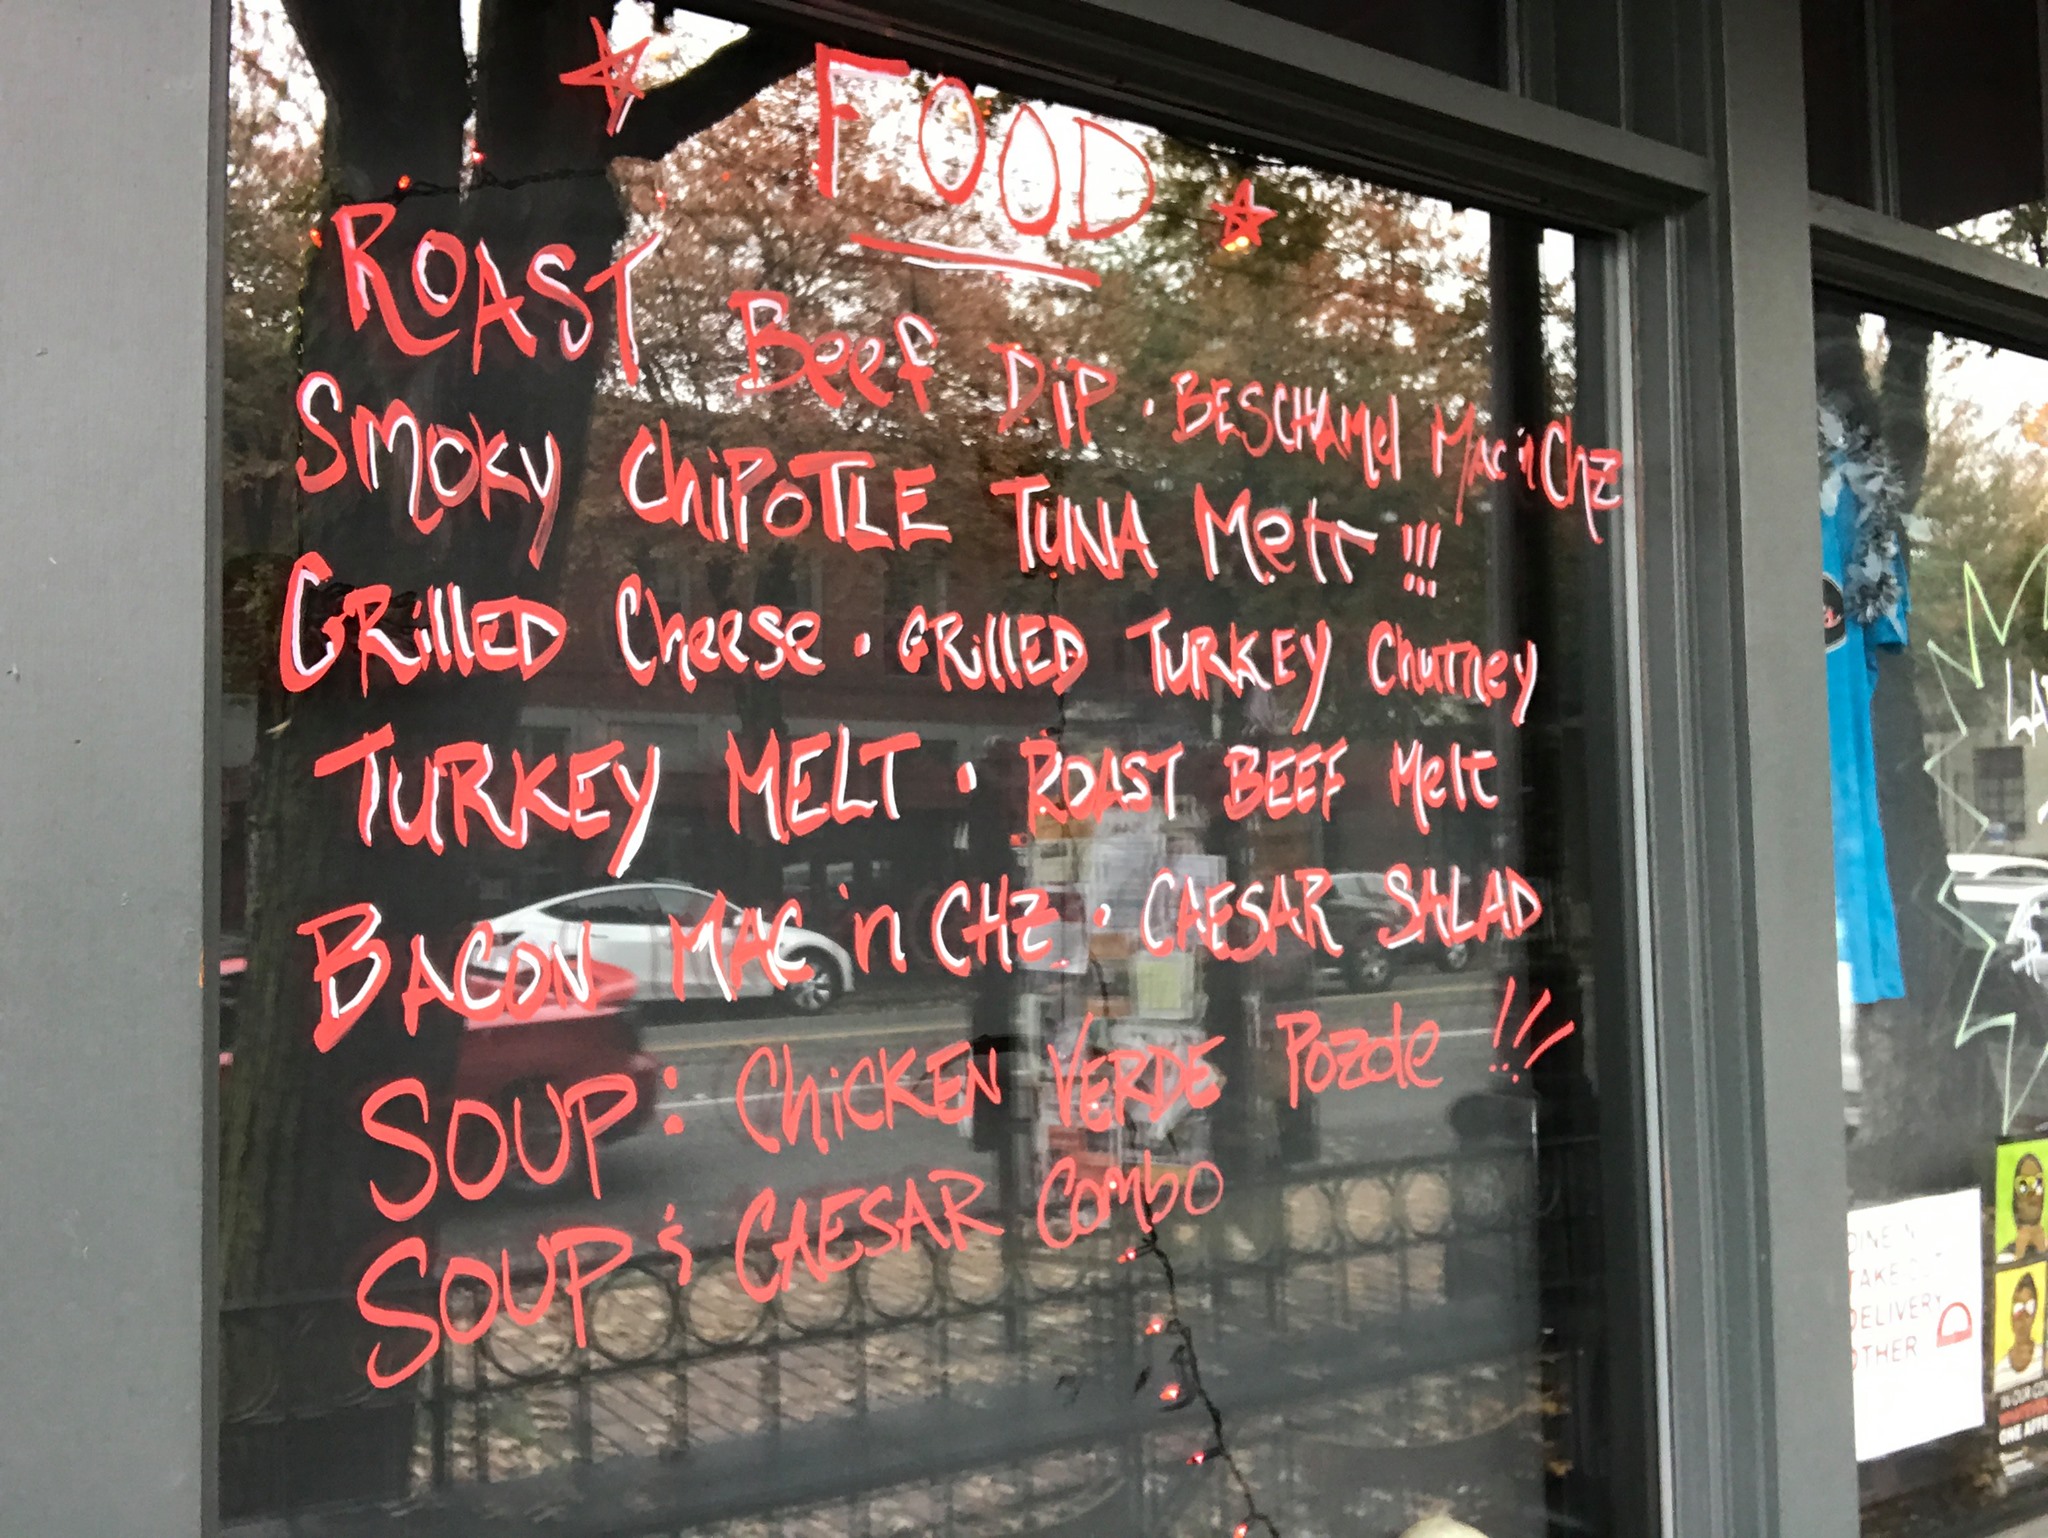 FOOD
ROAST Beef DiP · BESCHAMel Mac n Chz
SMOKY ChiPOTLE TUNA Melt !!!
GRillED Cheese · GRillED TURKEY Chutney
TURKEY MELT · ROAST BEEF Melt
BACON MAC 'n CHZ · CAESAR SALAD
SOUP: ChiCKEN VERDE Pozole !!!
SOUP & CAESAR Combo
DINE N
TAKE
DELIVERY
OTHER
IN OUR
ONE